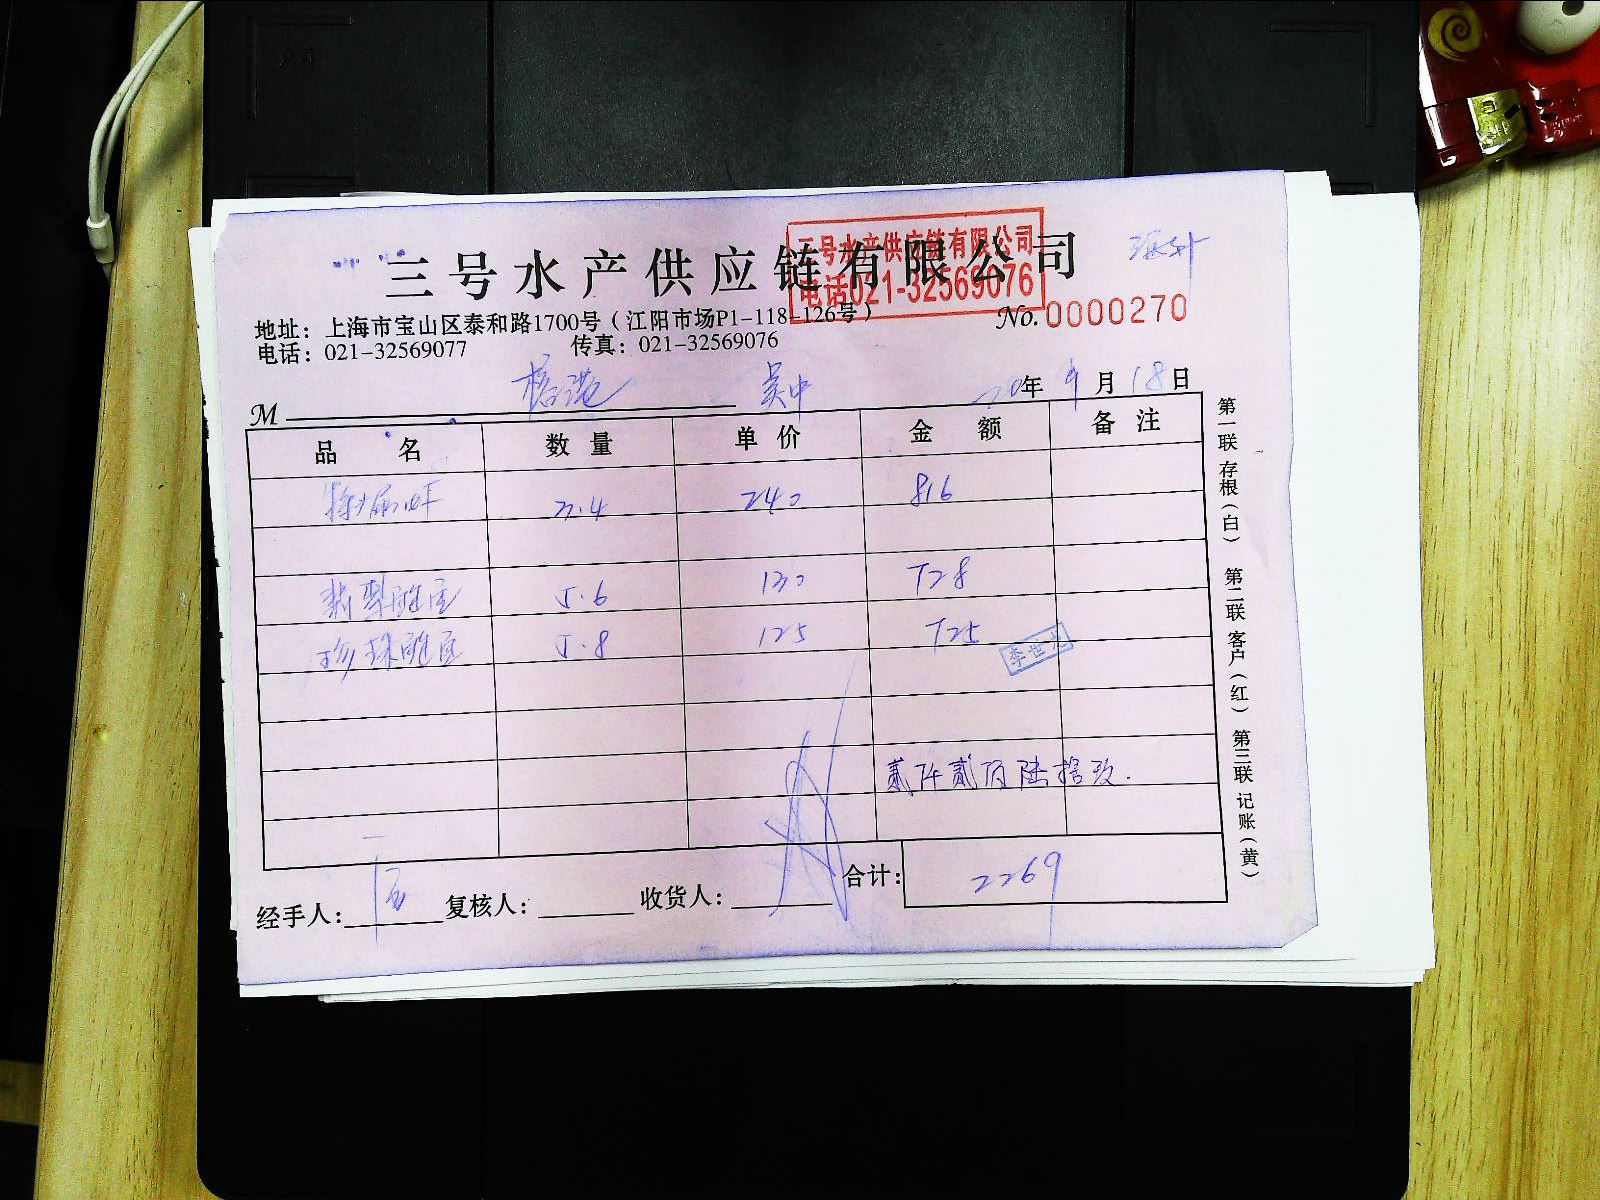 三号水产供应链有限公司
三号水产供应链有限公司
电话021-32569076
地址：上海市宝山区泰和路1700号（江阳市场P1-118-126号）
No.0000270
电话：021-32569077 传真：021-32569076
M 吴中 20年 9月18日
品名 数量 单价 金额 备注
3.4 240 816
翡翠 5.6 130 728
珍珠 5.8 125 725
李世
贰仟贰佰陆拾玖.
合计：2269
经手人： 复核人： 收货人：
第一联 存根（白） 第二联 客户（红） 第三联 记账（黄）
A4